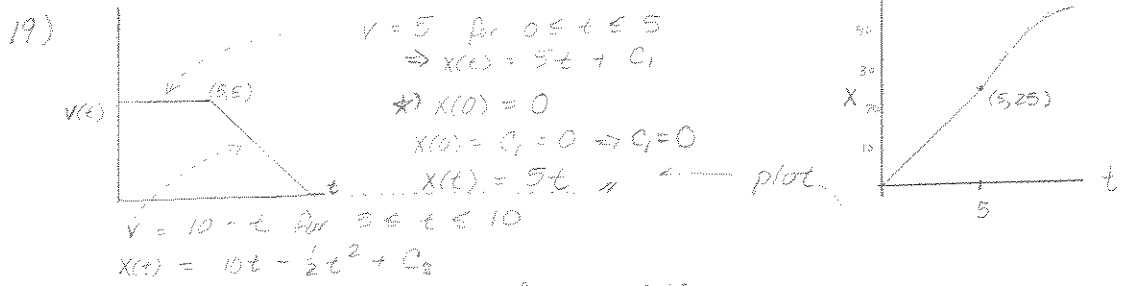 19)
v = 5 for 0 ≤ t ≤ 5
⇒ x(t) = 5t + C₁
*) x(0) = 0
x(0) = C₁ = 0 ⇒ C₁ = 0
x(t) = 5t
plot
v(t)
(5,5)
t
v = 10 - t for 5 ≤ t ≤ 10
x(t) = 10t - ½t² + C₂
30
X
10
(5,25)
5
t